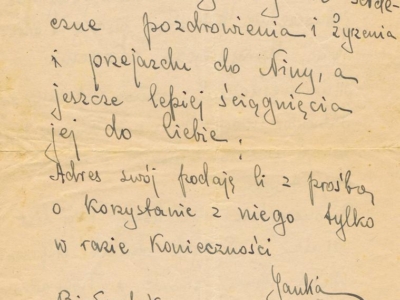 czne pozdrowienia i życzenia
i przejazdu do Niny, a
jeszcze lepiej ściągnięcia
jej do Ciebie.
Adres swój podaję Ci z prośbą
o korzystanie z niego tylko
w razie konieczności
Janka